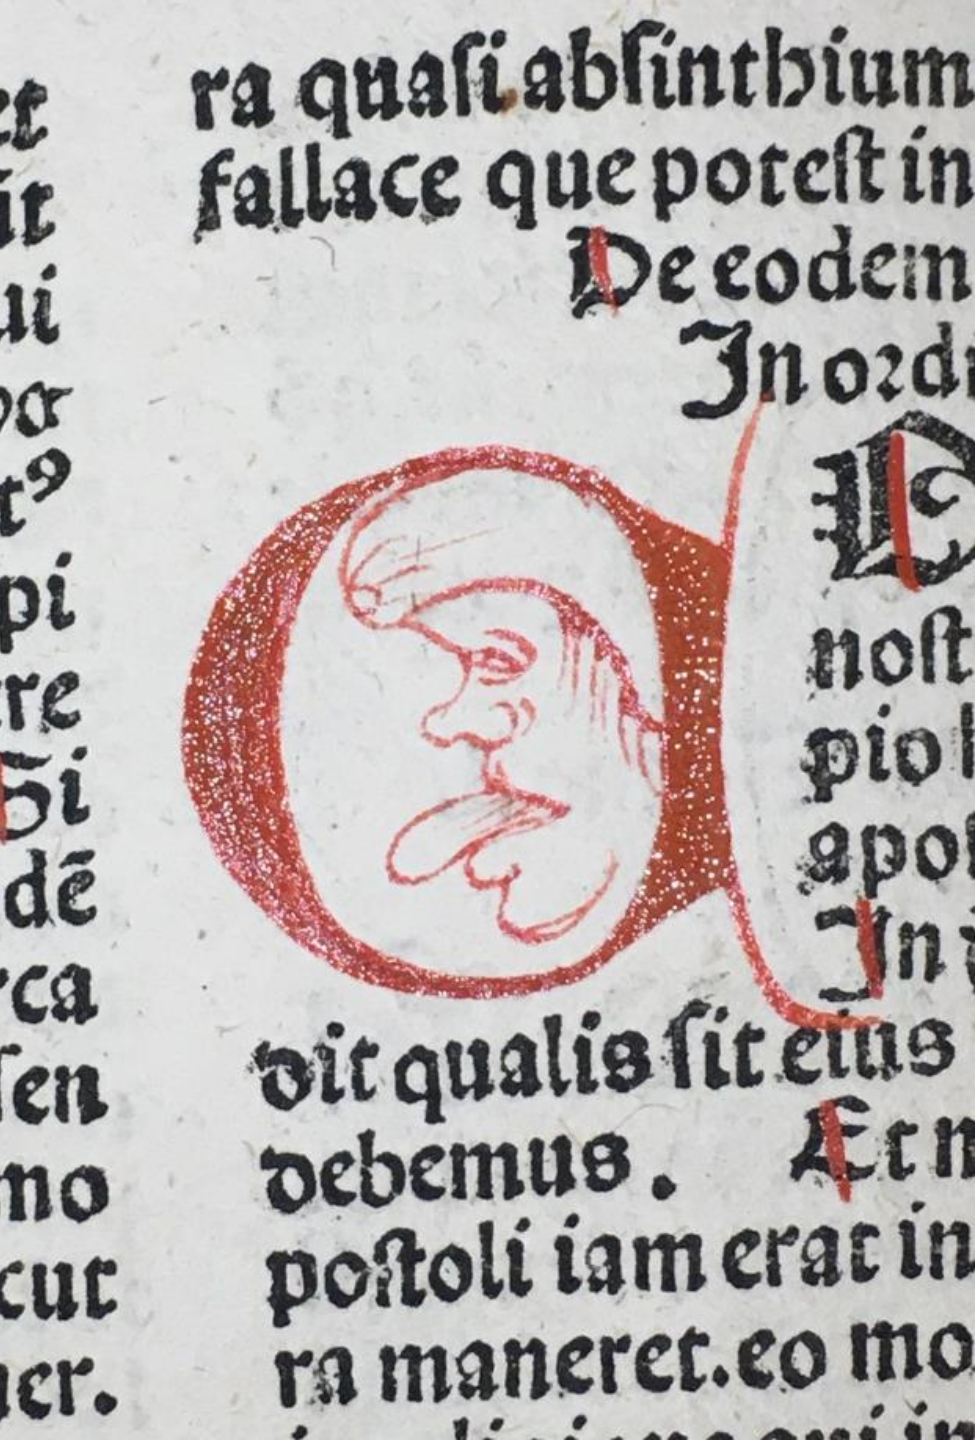 et
it
ui
t⁹
pi
re
Si
dē
rca
ſen
mo
cut
ner.
ra quaſi abſinthium
fallace que poteſt in
De eodem
In ordi
C
noſt
pio
apoſ
In
dit qualis ſit eius
debemus. Et
poſtoli iam erat in
ra maneret. eo mo